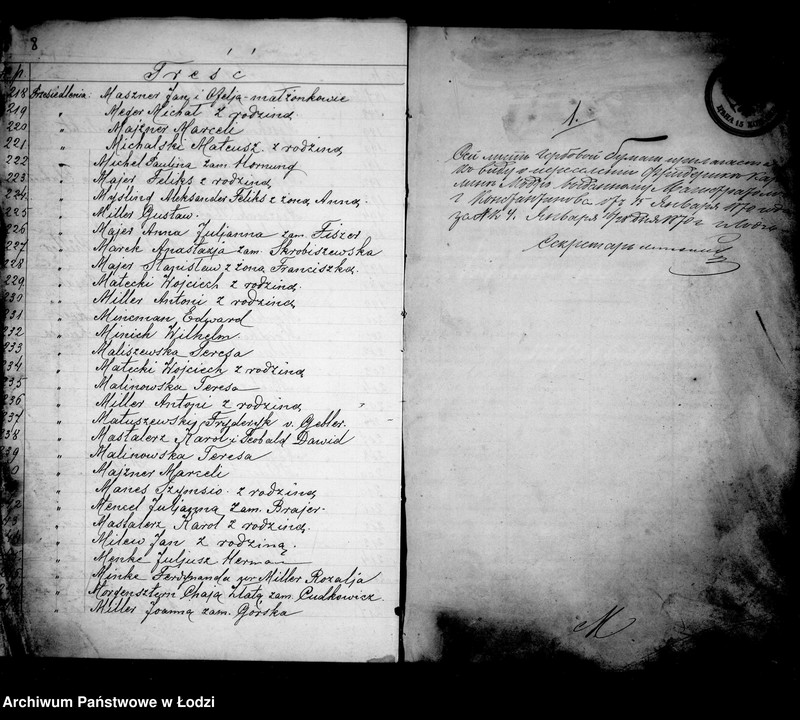 8
Treść
218 Przesiedlenia: Maszner Jan i Ofelja-małżonkowie
219 " Meder Michał z rodziną.
220 " Majzner Marceli
221 " Michalski Mateusz z rodziną
222 " Michel Paulina zam. Hornung
223 " Majer Feliks z rodziną
224 " Aleksander Feliks z żoną Anną.
225 " Miller Gustaw.
226 " Majer Anna Juljanna zam. Fiszer
227 " Marek Anastazja zam. Skrobiszewska
228 " Majer Stanisław z żoną Franciszką.
229 " Małecki Wojciech z rodziną.
230 " Miller Antoni z rodziną
231 " Mincman Edward
232 " Minich Wilhelm.
233 " Maliszewska Teresa
234 " Małecki Wojciech z rodziną
235 " Malinowska Teresa
236 " Miller Antoni z rodziną
237 " Matuszewski Fryderyk v. Gebler.
238 " Mastalerz Karol i Teobald Dawid
239 " Malinowska Teresa
0 " Majzner Marceli
" Manes z rodziną
2 " Mencel Juljanna zam. Brajer.
" Mastalerz Karol z rodziną.
" Milew Jan z rodziną.
" Menke Juljusz Herman
" Minke Ferdynanda Miller Rozalja
" Morgensztern Chaja Złata zam. Cudkowicz
" Miller Joanna zam. Górska
1.
Сей листъ Гербовой бумаги
къ виду о
г. Константинова отъ Января 1870 года
за № 4. Января 1870 г.
Секретарь
M
Archiwum Państwowe w Łodzi